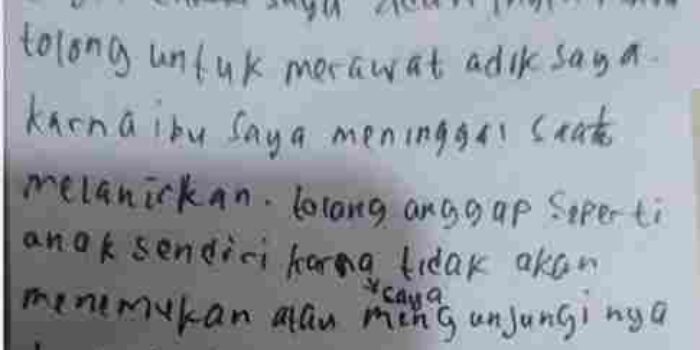 saya
tolong untuk merawat adik saya.
karna ibu saya meninggal saat
melanirkan. tolong anggap seperti
anak sendiri karna tidak akan
saya
menemukan atau mengunjungi nya